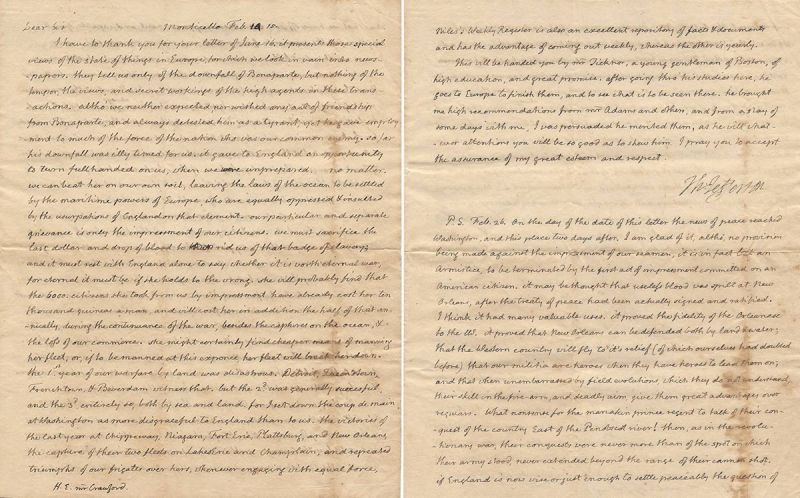 Dear Sir Monticello Feb. 14. 15.
I have to thank you for your letter of June 16. it presents those special
views of the state of things in Europe, for which we look in vain into news-
papers. they tell us only of the downfall of Bonaparte, but nothing of the
temper, the views, and secret workings of the high agents in these trans-
actions. altho' we neither expected nor wished any act of friendship
from Bonaparte, and always detested him as a tyrant, yet he gave employ-
ment to much of the force of the nation who was our common enemy. so far
his downfall was illy timed for us. it gave to England an opportunity
to turn full handed on us, when we were unprepared. no matter.
we can beat her on our own soil, leaving the laws of the ocean to be settled
by the maritime powers of Europe who are equally oppressed & insulted
by the usurpations of England on that element. our particular and separate
grievance is only the impressment of our citizens. we must sacrifice the
last dollar and drop of blood to rid us of that badge of slavery;
and it must rest with England alone to say whether it is worth eternal war,
for eternal it must be if she holds to the wrong. she will probably find that
the 6000. citizens she took from us by impressment have already cost her ten
thousand guineas a man, and will cost her in addition the half of that an-
nually, during the continuance of the war, besides the captures on the ocean, &
the loss of our commerce. she might certainly find cheaper means of manning
her fleet, or, if to be manned at this expence her fleet will break her down.
the 1st year of our warfare by land was disastrous. Detroit, Queenstown,
Frenchtown, & Beverdam witness that. but the 2d was generally successful,
and the 3d entirely so, both by sea and land. for I set down the coup de main
at Washington as more disgraceful to England than to us. the victories of
the last year at Chippeway, Niagara, Fort Erie, Plattsburg, and New Orleans,
the capture of their two fleets on Lakes Erie and Champlain, and repeated
triumphs of our frigates over hers, whenever engaging with equal force,
H. E. mr Crawford.
Niles's Weekly Register is also an excellent repository of facts & documents
and has the advantage of coming out weekly, whereas the other is yearly.
This will be handed you by mr Ticknor, a young gentleman of Boston, of
high education, and great promise. after going thro' his studies here, he
goes to Europe to finish them, and to see what is to be seen there. he brought
me high recommendations from mr Adams and others, and from a stay of
some days with me, I was persuaded he merited them, as he will what-
ever attentions you will be so good as to shew him. I pray you to accept
the assurance of my great esteem and respect.
Th: Jefferson
P.S. Feb. 26. On the day of the date of this letter the news of peace reached
Washington, and this place two days after. I am glad of it, altho' no provision
being made against the impressment of our seamen, it is in fact but an
Armistice, to be terminated by the first act of impressment committed on an
American citizen. it may be thought that useless blood was spilt at New
Orleans, after the treaty of peace had been actually signed and ratified.
I think it had many valuable uses. it proved the fidelity of the Orleanese
to the US. it proved that New Orleans can be defended both by land & water;
that the Western country will fly to it's relief (of which ourselves had doubted
before) that our militia are heroes when they have heroes to lead them on;
and that when unembarrassed by field evolutions, which they do not understand,
their skill in the fire-arm, and deadly aim, give them great advantages over
regulars. What nonsense for the manakin prince regent to talk of their con-
quest of the country East of the Penobscot river! then, as in the revolu-
-tionary war, their conquests were never more than of the spot on which
their army stood, never extended beyond the range of their cannon shot.
if England is now wise or just enough to settle peaceably the question of